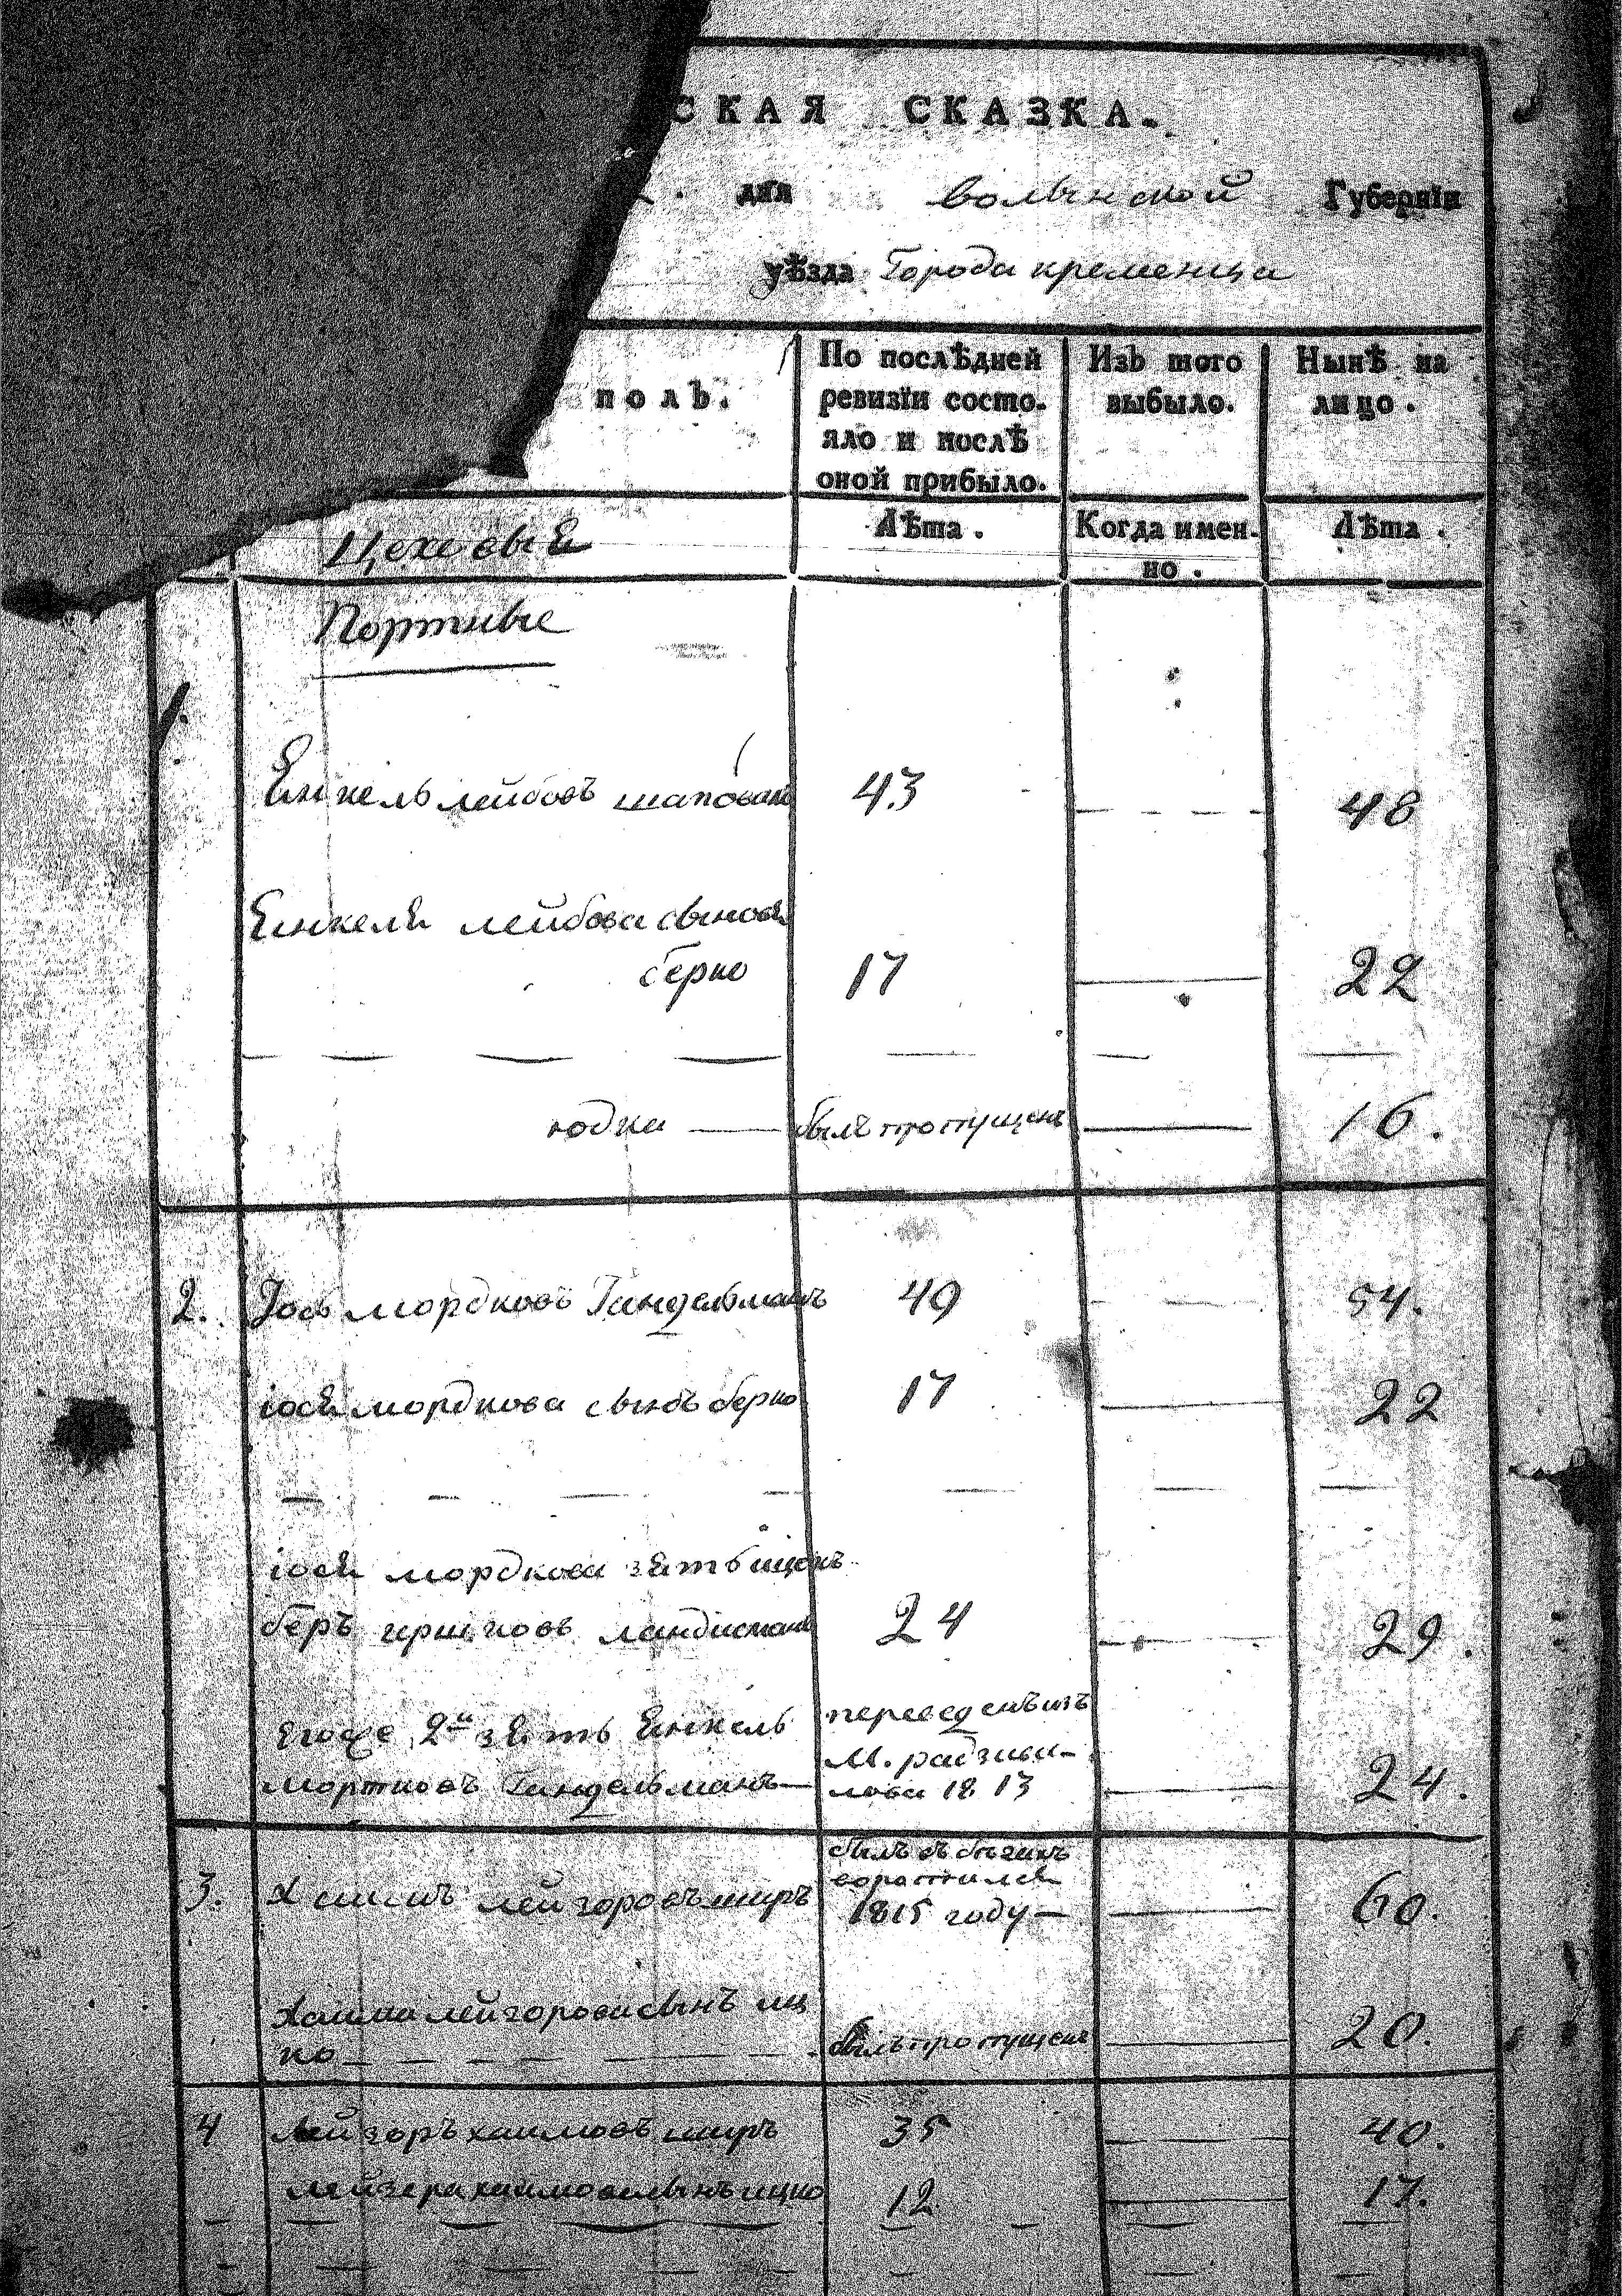 СКАЯ СКАЗКА.
дня Волынской Губернїи
уѣзда Города кременца
полъ.
По послѣдней
ревизїи состо-
яло и послѣ
оной прибыло.
Изъ того
выбыло.
Нынѣ на
лицо.
Лѣта.
Когда имен-
но.
Лѣта.
Цеховыя
Портные
1.
Янкель лейбовъ шаповал 43 48
Янкеля лейбова сыновя
берко 17 22
юдка — былъ пропущенъ — 16.
2. Іось мордковъ Гандельманъ 49 54.
іося мордкова сынъ берко 17 22
іося мордкова зять ицокъ
беръ гершковъ ландисманъ 24 29.
Егоже 2й зять Янкель
мортковъ Гандельманъ — 24.
переведенъ изъ
М. радзиви-
лова 1813
3. Хаимъ лейзоровъширъ 60.
былъ въ бѣгахъ
воротился
1815 году —
Хаима лейзорова сынъ иц
ко былъ пропущенъ 20.
4 лейзоръ хаимовъ ширъ 35 40.
лейзера хаимова сынъ ицко 12 17.